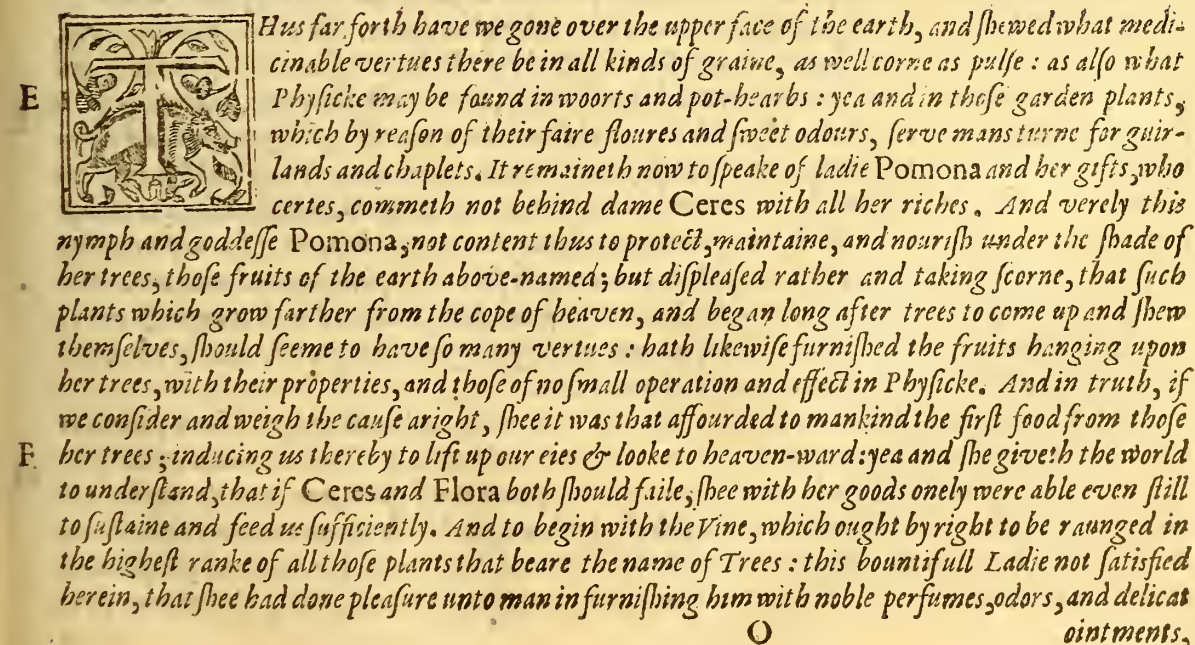 THus far forth have we gone over the upper face of the earth, and ſhewed what medi-
cinable vertues there be in all kinds of graine, as well corne as pulſe : as alſo what
E Phyſicke may be found in woorts and pot-hearbs : yea and in thoſe garden plants,
which by reaſon of their faire floures and ſweet odours, ſerve mans turne for guir-
lands and chaplets. It remaineth now to ſpeake of ladie Pomona and her gifts, who
certes, commeth not behind dame Ceres with all her riches. And verely this
nymph and goddeſſe Pomona, not content thus to protect, maintaine, and nouriſh under the ſhade of
her trees, thoſe fruits of the earth above-named; but diſpleaſed rather and taking ſcorne, that ſuch
plants which grow farther from the cope of heaven, and began long after trees to come up and ſhew
themſelves, ſhould ſeeme to have ſo many vertues : hath likewiſe furniſhed the fruits hanging upon
her trees, with their properties, and thoſe of no ſmall operation and effect in Phyſicke. And in truth, if
we conſider and weigh the cauſe aright, ſhee it was that affourded to mankind the firſt food from thoſe
F her trees ; inducing us thereby to lift up our eies & looke to heaven-ward: yea and ſhe giveth the world
to underſtand, that if Ceres and Flora both ſhould faile, ſhee with her goods onely were able even ſtill
to ſuſtaine and feed us ſufficiently. And to begin with the Vine, which ought by right to be raunged in
the higheſt ranke of all thoſe plants that beare the name of Trees : this bountifull Ladie not ſatisfied
herein, that ſhee had done pleaſure unto man in furniſhing him with noble perfumes, odors, and delicat
O ointments,